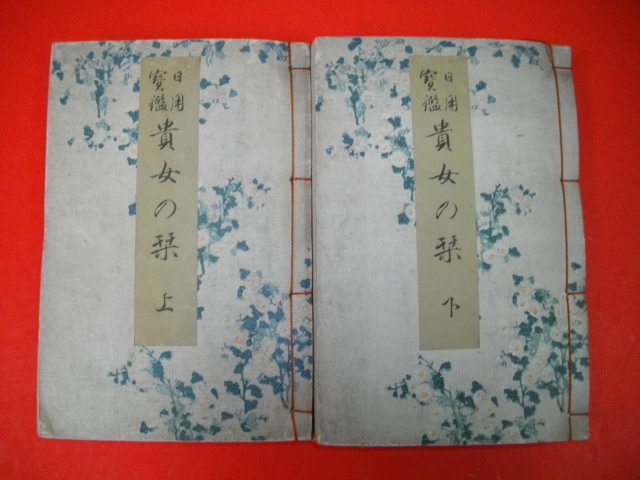 日用
寳鑑
貴女の栞 上
日用
寳鑑
貴女の栞 下